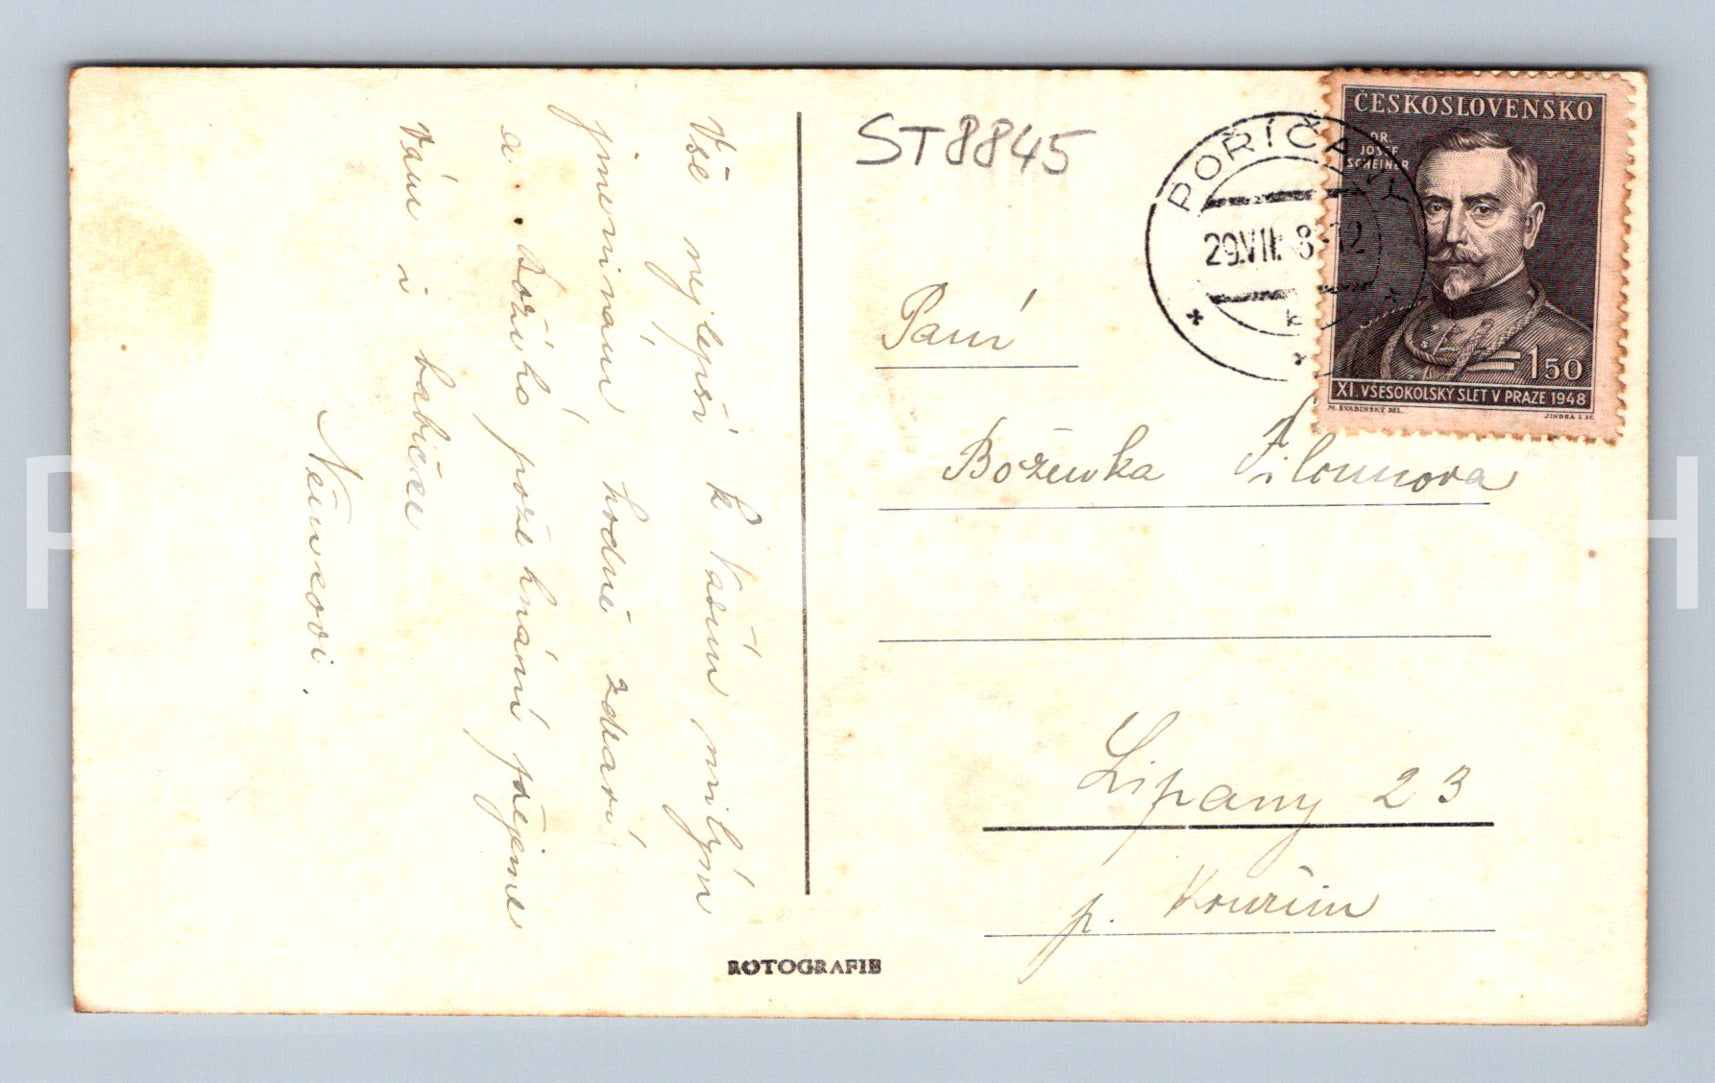 Vše nejlepší k Vašim milým
jmeninám, hodně zdraví
a Božího požehnání přejeme
Vám i babičce
Němcovi.
ST8845
POŘÍČANY
29.VII. 8-12
ČESKOSLOVENSKO
DR.
JOSEF
SCHEINER
1 50
XI. VŠESOKOLSKÝ SLET V PRAZE 1948
M. ŠVABINSKÝ DEL.
JINDRA SC.
Paní
Boženka
Lipany 23
p. Kouřim
ROTOGRAFIE